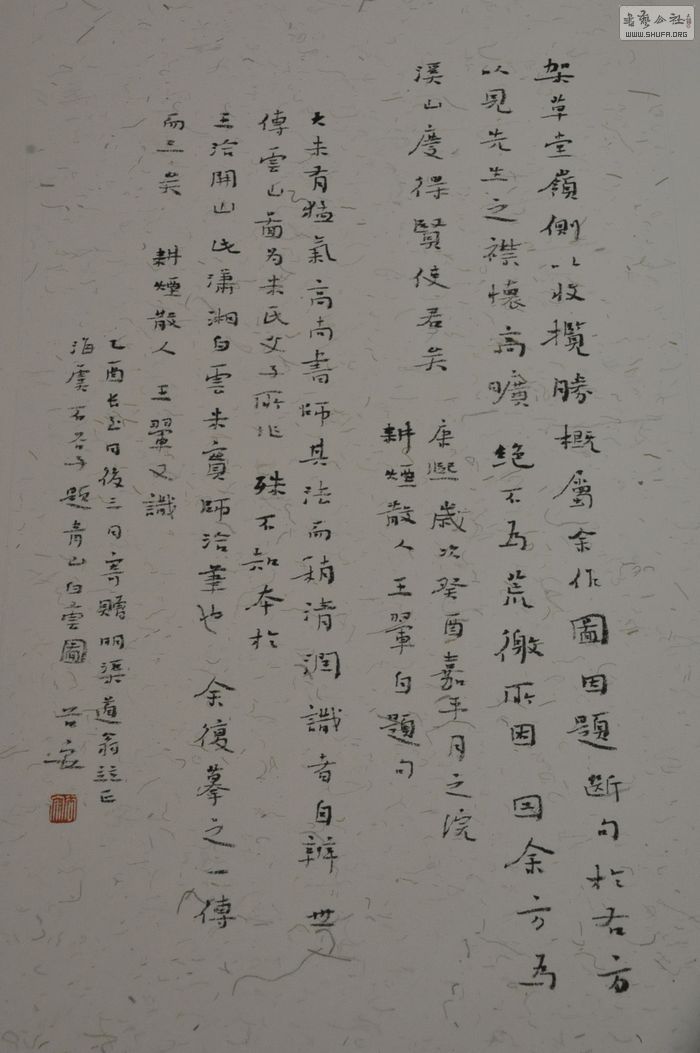 架草堂嶺側以收攬勝概屬余作圖因題斷句於右方
以見先生之襟懷高曠 絕不為荒徼所困 因余方為
溪山慶得賢使君矣
康熙歲次癸酉嘉平月之浣
耕煙散人王翬自題句
大米有猛氣高尚書師其法而稍清潤識者自辨 世
傳雲山圖為米氏父子所作 殊不知本於
王洽開山此瀟湘白雲米實師洽筆也 余復摹之一傳
而三矣 耕煙散人王翬又識
乙酉長至日後三日寄贈明渠道翁
海虞石谷子題青山白雲圖
書藝公社
WWW.SHUFA.ORG